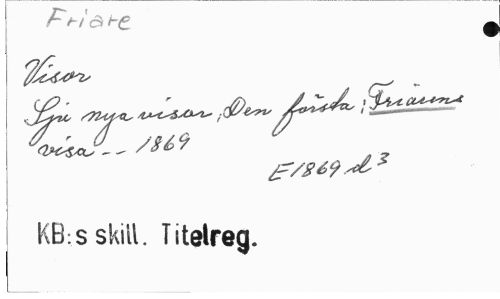 Friare
Visor
Sju nya visor, Den första: Friarens
visa -- 1869
E1869 d3
KB:s skill. Titelreg.